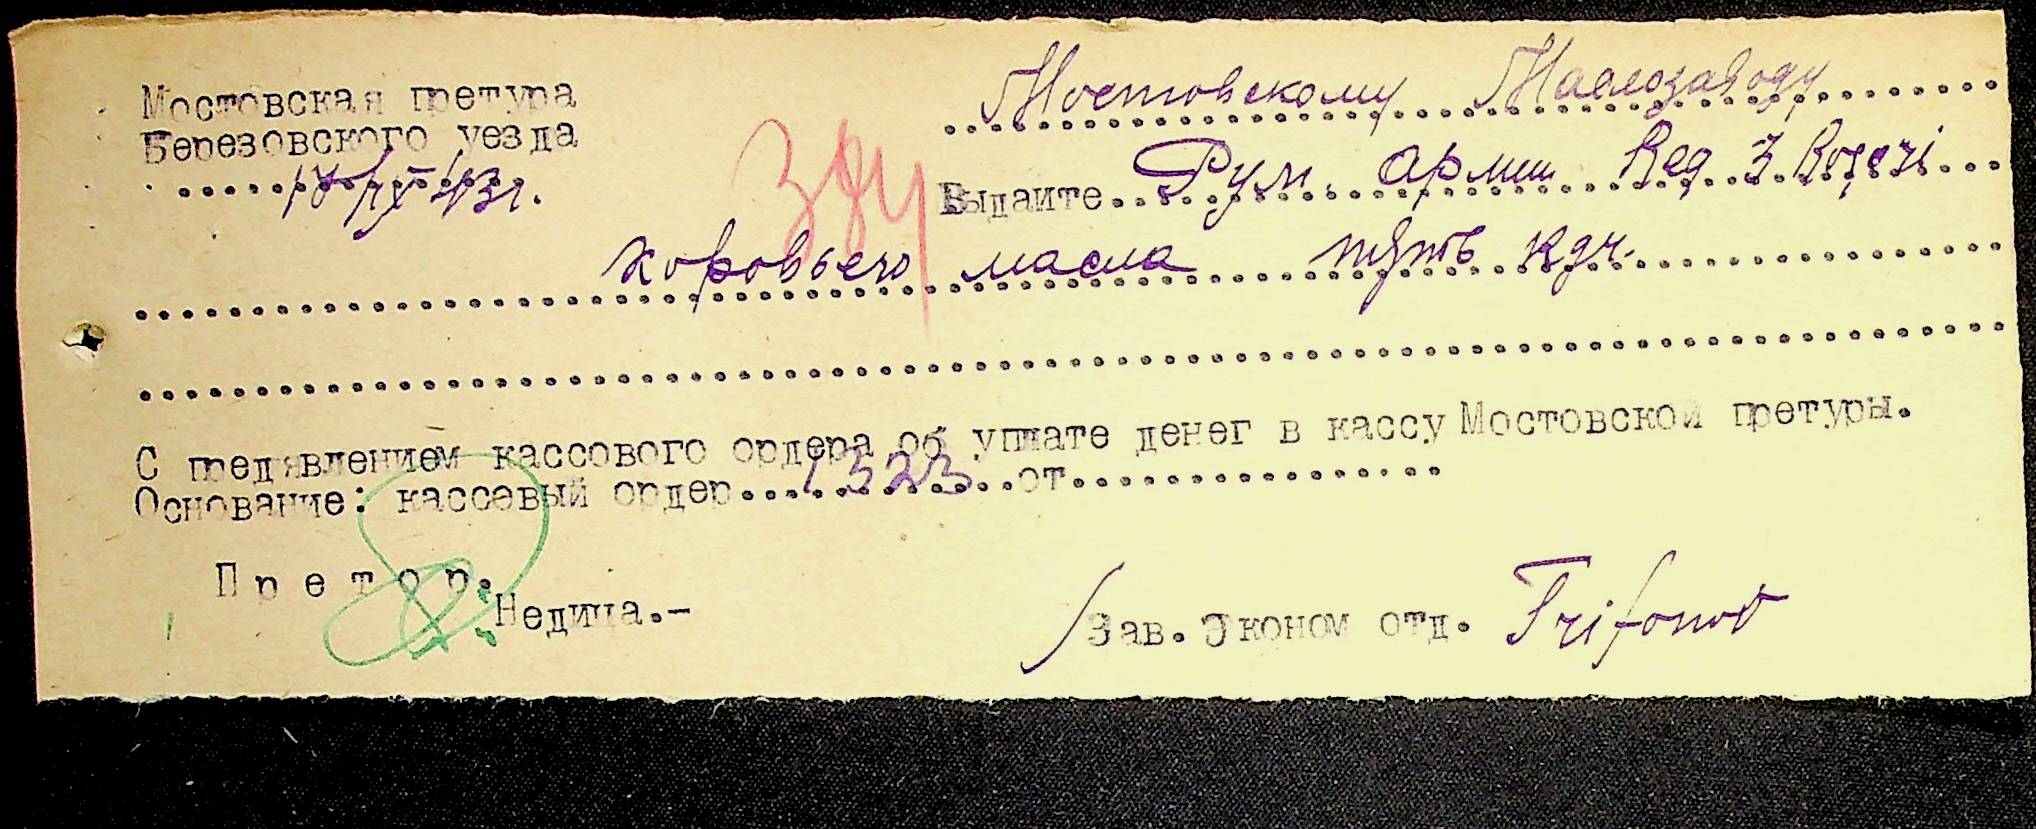 Мостовская претура
Березовского уезда
17/IX 43г.
Мостовскому Маслозаводу
Выдайте Рум. армии Reg. 3 Roșeri
коровьего масла пять кгч.
С предявлением кассового ордера об уплате денег в кассу Мостовской претуры.
Основание: кассовый ордер 1323 от
Претор.
Недица.-
Зав. Эконом отд. Trifonov